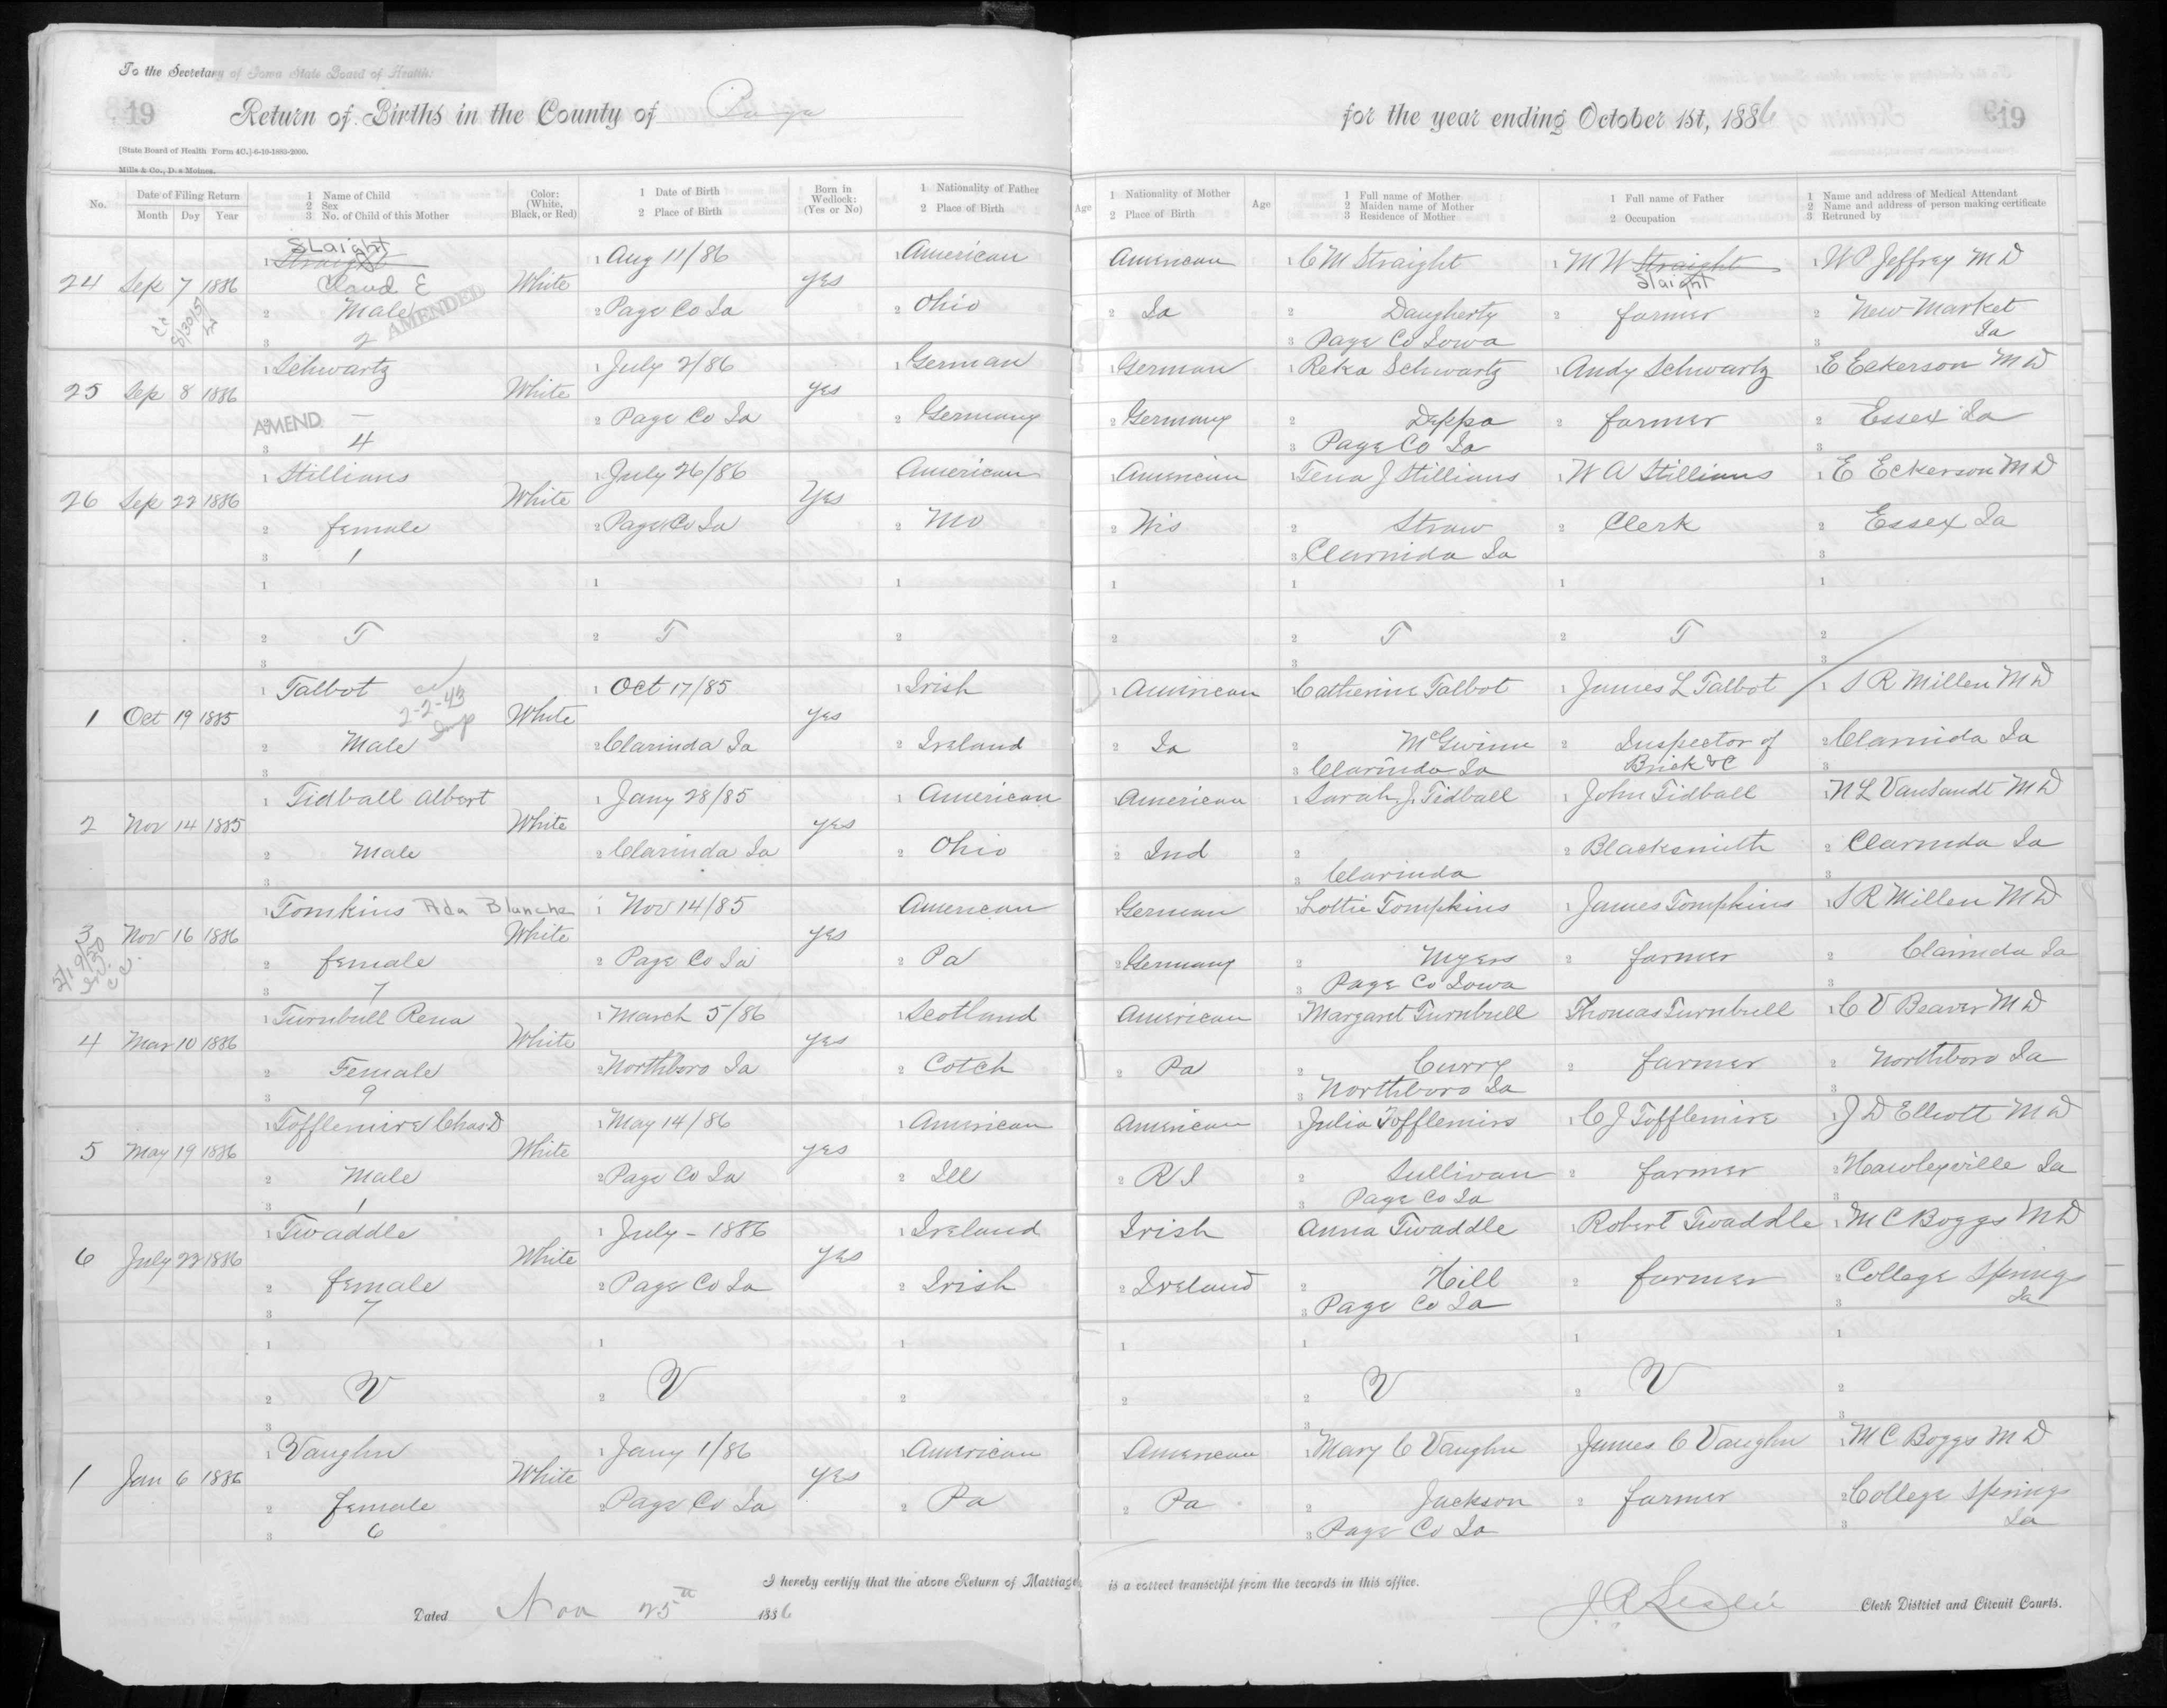 To the Secretary of Iowa State Board of Health:
19 Return of Births in the County of Page for the year ending October 1st, 1886 19
[State Board of Health Form 4C.]-6-19-1883-2000.
Mills & Co., D.s Moines.
No. Date of Filing Return Month Day Year 1 Name of Child 2 Sex 3 No. of Child of this Mother Color: (White, Black, or Red) 1 Date of Birth 2 Place of Birth Born in Wedlock: (Yes or No) 1 Nationality of Father 2 Place of Birth Age 1 Nationality of Mother 2 Place of Birth Age 1 Full name of Mother 2 Maiden name of Mother 3 Residence of Mother 1 Full name of Father 2 Occupation 1 Name and address of Medical Attendant 2 Name and address of person making certificate 3 Retruned by
SLaight
1 Straight 1 Aug 11/86 1 American American 1 C M Straight 1 M W Straight 1 W P Jeffrey M D
24 Sep 7 1886 Claud E White yes Slaight
2 Male AMENDED 2 Page Co Ia 2 Ohio 2 Ia 2 Daugherty 2 farmer 2 New Market
cc 8/30/51
3 2 3 Page Co Iowa 3 Ia
1 Schwartz 1 July 2/86 1 German 1 German 1 Reka Schwartz 1 Andy Schwartz 1 E Eckerson M D
25 Sep 8 1886 White yes
AMEND. — 2 Page Co Ia 2 Germany 2 Germany 2 Deppa 2 farmer 2 Essex Ia
3 4 3 Page Co Ia 3
1 Stillians 1 July 26/86 American 1 American 1 Tena J Stillians 1 W A Stillians 1 E Eckerson M D
26 Sep 22 1886 White Yes
2 female 2 Page Co Ia 2 Mo 2 Wis 2 Straw 2 Clerk 2 Essex Ia
3 1 3 Clarinda Ia 3
1 1 1 1 1 1 1
2 T 2 T 2 2 2 T 2 T 2
3 3 3
1 Talbot 1 Oct 17/85 1 Irish 1 American Catherine Talbot 1 James L Talbot 1 S R Millen M D
2-2-43
1 Oct 19 1885 White yes
2 Male 2 Clarinda Ia 2 Ireland 2 Ia 2 McGwinn 2 Inspector of 2 Clarinda Ia
3 3 Clarinda Ia Brick &C 3
1 Tidball Albert 1 Jany 28/85 1 American American 1 Sarah J. Tidball 1 John Tidball 1 N L VanSandt M D
2 Nov 14 1885 White yes
2 Male 2 Clarinda Ia 2 Ohio 2 Ind 2 2 Blacksmith 2 Clarinda Ia
3 3 Clarinda 3
1 Tomkins Ada Blanche 1 Nov 14/85 American 1 German Lottie Tompkins 1 James Tompkins 1 S R Millen M D
3 Nov 16 1886 White yes
2 female 2 Page Co Ia 2 Pa 2 Germany 2 Myers 2 farmer 2 Clarinda Ia
3 7 3 Page Co Iowa 3
1 Turnbull Rena 1 March 5/86 1 Scotland American Margaret Turnbull Thomas Turnbull 1 C V Beaver M D
4 Mar 10 1886 White yes
2 Female 2 Northboro Ia 2 Cotch 2 Pa 2 Curry 2 farmer 2 Northboro Ia
3 9 3 Northboro Ia 3
1 Tofflemire Chas D 1 May 14/86 1 American American Julia Tofflemire 1 C J Tofflemire 1 J D Elliott M D
5 May 19 1886 White yes
2 Male 2 Page Co Ia 2 Ill 2 R I 2 Sullivan 2 farmer 2 Hawleyville Ia
3 1 3 Page Co Ia 3
1 Twaddle 1 July - 1886 1 Ireland Irish Anna Twaddle 1 Robert Twaddle 1 M C Boggs M D
6 July 22 1886 White yes
2 female 2 Page Co Ia 2 Irish 2 Ireland 2 Hill 2 farmer 2 College Springs
3 7 3 Page Co Ia 3 Ia
1 1 1 1 1 1 1
2 V 2 V 2 2 2 V 2 V 2
3 3 3
1 Vaughn 1 Jany 1/86 1 American American 1 Mary C Vaughn James C Vaughn 1 M C Boggs M D
1 Jan 6 1886 White yes
2 female 2 Page Co Ia 2 Pa 2 Pa 2 Jackson 2 farmer 2 College Springs
3 6 3 Page Co Ia 3 Ia
I hereby certify that the above Return of Marriages is a correct transcript from the records in this office.
Dated Nov 25th 1886 J R Leslie Clerk District and Circuit Courts.